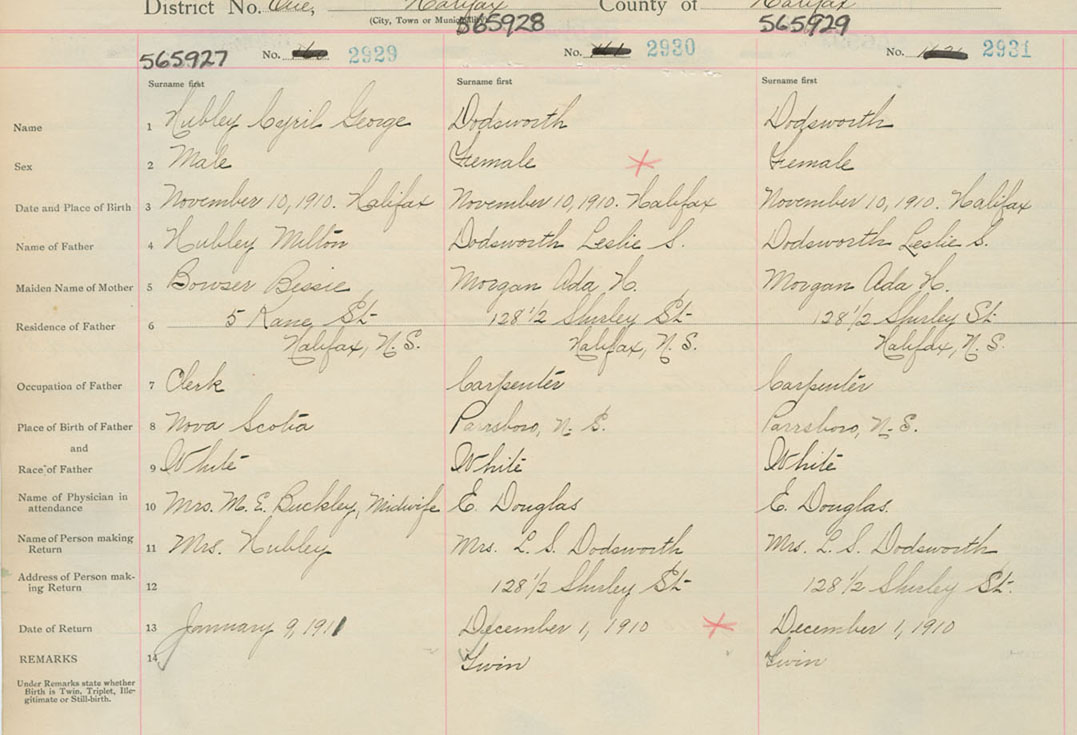 District No. One, Halifax County of Halifax
(City, Town or Municipality)
565927 No. 2929 565928 No. 2930 565929 No. 2931
Surname first Surname first Surname first
Name 1 Hubley Cyril George Dodsworth Dodsworth
Sex 2 Male Female Female
Date and Place of Birth 3 November 10, 1910. Halifax November 10, 1910. Halifax November 10, 1910. Halifax
Name of Father 4 Hubley Milton Dodsworth Leslie S. Dodsworth Leslie S.
Maiden Name of Mother 5 Bowser Bessie Morgan Ada H. Morgan Ada H.
Residence of Father 6 5 Kane St 128 1/2 Shirley St 128 1/2 Shirley St
Halifax, N.S. Halifax, N.S. Halifax, N.S.
Occupation of Father 7 Clerk Carpenter Carpenter
Place of Birth of Father 8 Nova Scotia Parrsboro, N.S. Parrsboro, N.S.
and
Race of Father 9 White White White
Name of Physician in attendance 10 Mrs. M. E. Buckley, Midwife E. Douglas E. Douglas.
Name of Person making Return 11 Mrs. Hubley Mrs. L. S. Dodsworth Mrs. L. S. Dodsworth
Address of Person mak-
ing Return 12 128 1/2 Shirley St 128 1/2 Shirley St.
Date of Return 13 January 9, 1911 December 1, 1910 December 1, 1910
REMARKS 14 Twin Twin
Under Remarks state whether
Birth is Twin, Triplet, Ille-
gitimate or Still-birth.